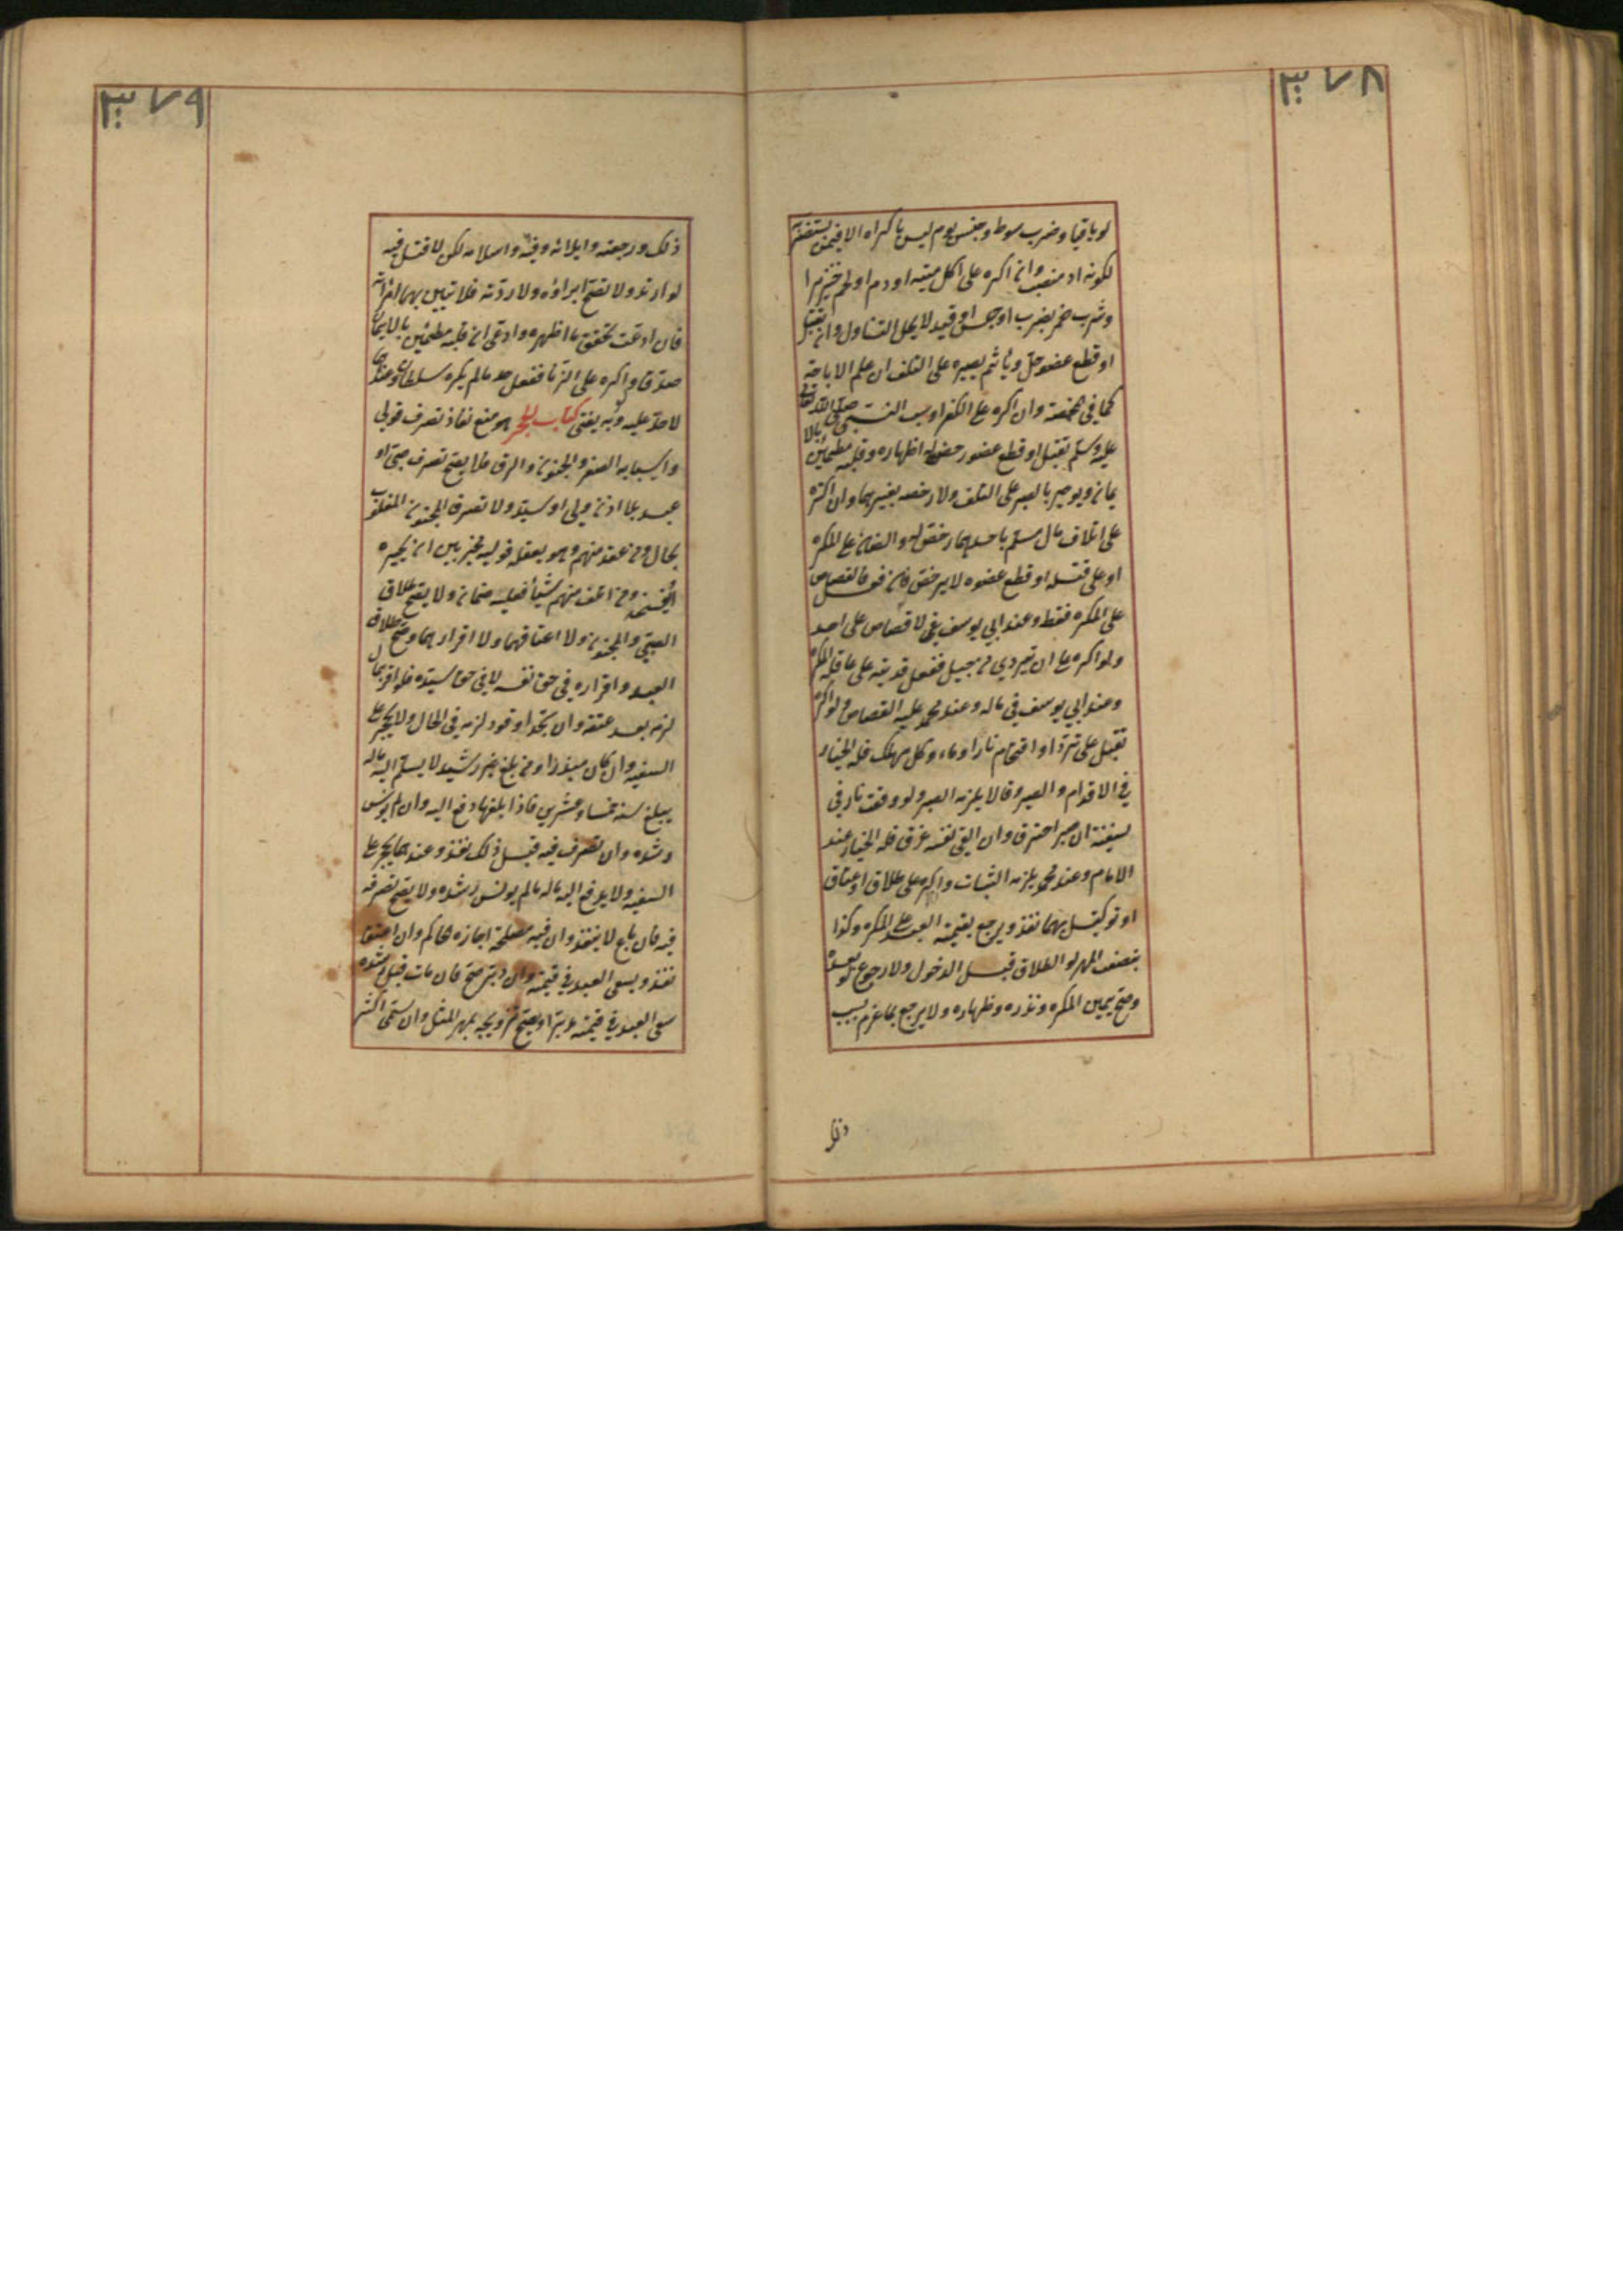 ٣٧٨
لو باقيا وضرب سوط وحبس يوم ليس باكراه الا فيمن يستضر
لكونه اذ منصب وان اكره على اكل ميتة او دم او لحم خنزير ا
وشرب خمر بضرب او حبس او قيد لا يحل التناول وان بقتل
او قطع عضو حل وياثم بصبره على التلف ان علم الاباحة
كما في المخمصة وان اكره على الكفر او سب النبي صلى الله تعالى
عليه وسلم بقتل او قطع عضو رخص له اظهاره وقلبه مطمئن بالا
يمان ويوجر بالصبر على التلف ولا رخصة بغيرهما وان اكره
على اتلاف مال مسلم باحدهما رخص له والضمان على المكره
او على قتله او قطع عضوه لا يرخص فان فعل فالقصاص
على المكره فقط وعند ابي يوسف لا قصاص على احد
ولو اكره على ان يتردي من جبل ففعل فديته على عاقلة المكره
وعند ابي يوسف في ماله وعند محمد عليه القصاص ولو اكره
بقتل على ترد او اقتحام نار او ماء وكل مهلك فله الخيار
في الاقدام والصبر وقالا يلزمه الصبر ولو وقعت نار في
سفينة ان صبر احترق وان القى نفسه غرق فله الخيار عند
الامام وعند محمد يلزمه الثبات واكره على طلاق او عتاق
او توكيل بهما نفذ ويرجع بقيمة العبد على المكره وكذا
بنصف المهر لو الطلاق قبل الدخول ولا رجوع لو بعده
وصح يمين المكره ونذره وظهاره ولا يرجع بما غرم بسبب
ذلك
٣٧٩
ذلك ورجعته وايلائه وفيئه واسلامه لكن لا قتل فيه
لو ارتد ولا تصح ابراؤه ولا ردته فلا تبين بها امراته
فان ادعت تحقق ما اظهره وادعى ان قلبه مطمئن بالايمان
صدق ولو اكره على الزنا ففعل حد ما لم يكره سلطان وعندهما
لا حد عليه وبه يفتى كتاب الحجر هو منع نفاذ تصرف قولي
واسبابه الصغر والجنون والرق فلا يصح تصرف صبي او
عبد بلا اذن ولي او سيد ولا تصرف المجنون المغلوب
بحال ومن عقد منهم وهو يعقله فوليه مخير بين ان يجيزه
او يفسخه ومن اتلف منهم شيأ فعليه ضمانه ولا يصح طلاق
الصبي والمجنون ولا اعتاقهما ولا اقرارهما وصح طلاق
العبد واقراره في حق نفسه لا في حق سيده فلو اقر بمال
لزمه بعد عتقه وان بحد او قود لزمه في الحال ولا يحجر على
السفيه وان كان مبذرا ومن بلغ غير رشيد لا يسلم اليه ماله
يبلغ سنه خمسا وعشرين فاذا بلغها دفع اليه وان لم يونس
رشده وان تصرف فيه قبل ذلك نفذ وعندهما يحجر على
السفيه ولا يدفع اليه ماله ما لم يونس رشده ولا يصح تصرفه
فيه فان باع لا ينفذ وان فيه مصلحة اجازه الحاكم وان اعتق
نفذ ويسعى العبد في قيمته وان دبر صح فان مات قبل رشده
سعى العبد في قيمته مدبرا ويصح تزويجه بمهر المثل وان سمى اكثر